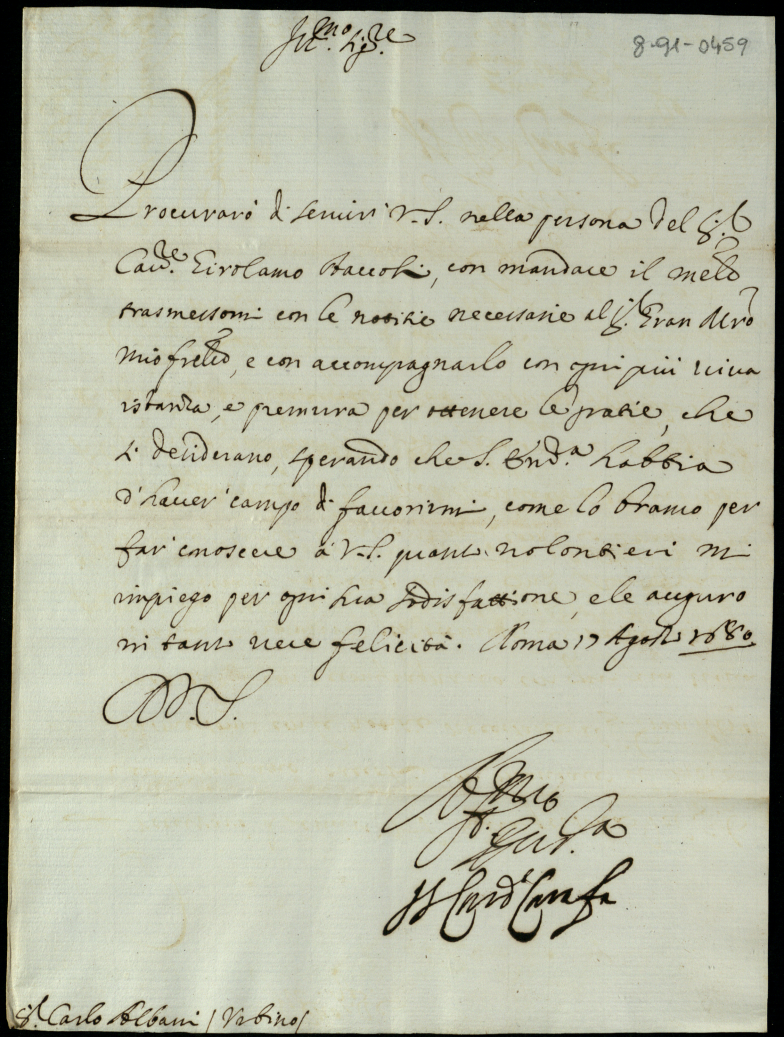 Ill.mo Sig.re
8-91-0459
Procurarò di servir' V.S. nella persona del S.r
Cav.re Girolamo Staccoli, con mandare il mem.le
trasmessomi con le notitie necessarie al S.r Gran M.ro
mio fr̃ello, e con accompagnarlo con ogni più viva
istanza, e premura per ottenere le gratie, che
si desiderano, sperando che S. Em.za habbia
d'haver' campo di favorirmi, come lo bramo per
far' conoscere à V.S. quanto volontieri mi
impiego per ogni sua sodisfattione, e le auguro
in tanto vere felicità. Roma 17 Agosto 1680.
D V.S.
Il Card.l Carafa
S.r Carlo Albani / Urbino /